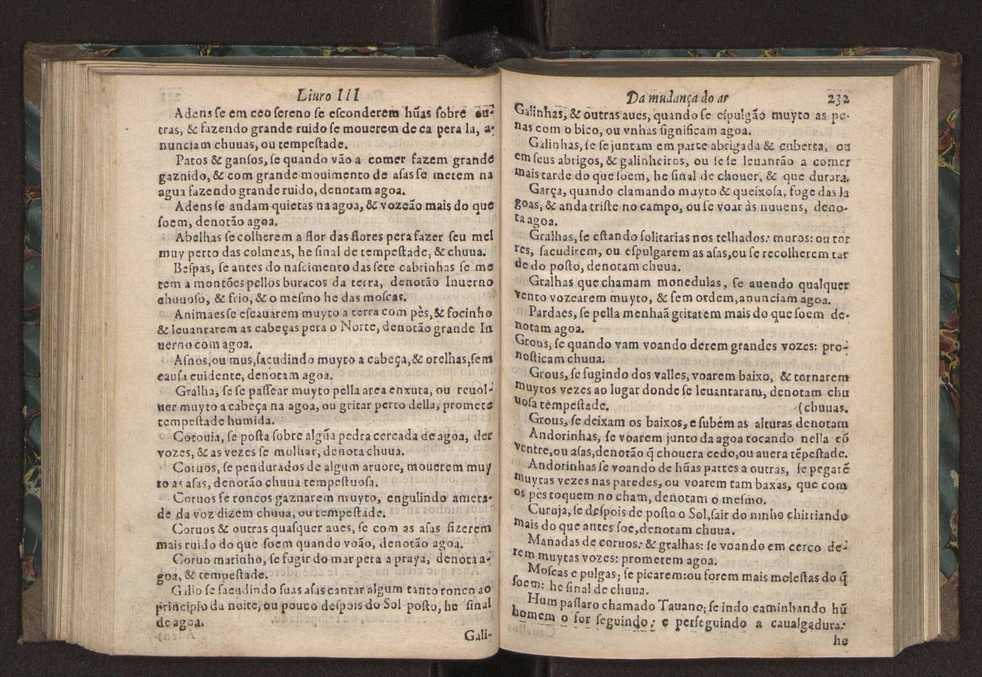 Liuro III
Adens se em ceo sereno se esconderem hũas sobre ou-
tras, & fazendo grande ruido se mouerem de ca pera la, a-
nunciam chuuas, ou tempestade.
Patos & gansos, se quando vão a comer fazem grande
gaznido, & com grande mouimento de asas se metem na
agua fazendo grande ruido, denotam agoa.
Adens se andam quietas na agoa, & vozeão mais do que
soem, denotão agoa.
Abelhas se colherem a flor das flores pera fazer seu mel
muy perto das colmeas, he sinal de tempestade, & chuua.
Bespas, se antes do nascimento das sete cabrinhas se me
tem a montões pellos buracos da terra, denotão Inuerno
chuuoso, & frio, & o mesmo he das moscas.
Animaes se escauarem muyto a terra com pés, & focinho
& leuantarem as cabeças pera o Norte, denotão grande In
uerno com agoa.
Asnos, ou mus, sacudindo muyto a cabeça, & orelhas, sem
causa euidente, denotam agoa.
Gralha, se se passear muyto pella area enxuta, ou reuol-
uer muyto a cabeça na agoa, ou gritar perto della, promete
tempestade humida.
Cotouia, se posta sobre algũa pedra cercada de agoa, der
vozes, & as vezes se molhar, denota chuua.
Coruos, se pendurados de algum aruore, mouerem muy
to as asas, denotão chuua tempestuosa.
Coruos se roncos gaznarem muyto, engulindo ameta-
de da voz dizem chuua, ou tempestade.
Coruos & outras quaesquer aues, se com as asas fizerem
mais ruido do que soem quando voão, denotão agoa.
Coruo marinho, se fugir do mar pera a praya, denota a-
goa, & tempestade.
Gallo se sacudindo suas asas cantar algum tanto ronco ao
principio da noite, ou pouco despois do Sol posto, he sinal
de agoa.
Gali-
Da mudança do ar 232
Galinhas, & outras aues, quando se espulgão muyto as pe-
nas com o bico, ou vnhas significam agoa.
Galinhas, se se juntam em parte abrigada & cuberta, ou
em seus abrigos, & galinheiros, ou se se leuantão a comer
mais tarde do que soem, he sinal de chouer, & que durara.
Garça, quando clamando muyto & queixosa, foge das la
goas, & anda triste no campo, ou se voar às nuuens, deno-
ta agoa.
Gralhas, se estando solitarias nos telhados: muros: ou tor
res, sacudirem, ou espulgarem as asas, ou se recolherem tar
de do posto, denotam chuua.
Gralhas que chamam monedulas, se auendo qualquer
vento vozearem muyto, & sem ordem, anunciam agoa.
Pardaes, se pella menhaã gritatem mais do que soem de-
notam agoa.
Grous, se quando vam voando derem grandes vozes: pro-
nosticam chuua.
Grous, se fugindo dos valles, voarem baixo, & tornarem
muytos vezes ao lugar donde se leuantaram, denotam chu
uosa tempestade. (chuuas.
Grous, se deixam os baixos, e subém as alturas denotam
Andorinhas, se voarem junto da agoa tocando nella cõ
ventre, ou asas, denotão q̃ chouera cedo, ou auera tẽpestade.
Andorinhas se voando de hũas partes a outras, se pegarẽ
muytas vezes nas paredes, ou voarem tam baxas, que com
os pes toquem no cham, denotam o mesmo.
Curuja, se despois de posto o Sol, sair do ninho chirriando
mais do que antes soe, denotam chuua.
Manadas de coruos: & gralhas: se voando em cerco de-
rem muytas vozes: prometem agoa.
Moscas e pulgas; se picarem: ou forem mais molestas do q̃
soem: he sinal de chuua.
Hum passaro chamado Tauano; se indo caminhando hũ
homem o for seguindo: e perseguindo a caualgadura:
he